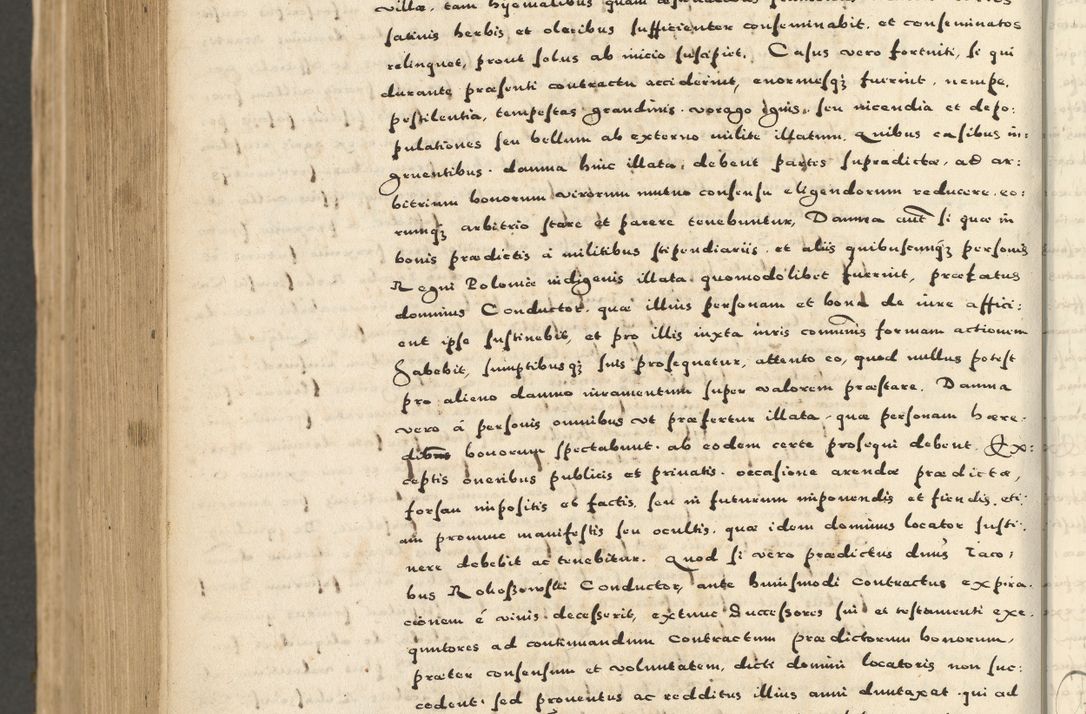 villæ, tam hyemalibus quam
satinis herbis et oleribus sufficienter conseminabit, et conseminatos
relinquet, prout solus ab inicio suscipiet. Casus vero fortuiti, si qui
durante præsenti contractu acciderint, enormesq; fuerint, nempe,
pestilentia, tempestas grandinis, vorago ignis, seu incendia et depo:
pulationes seu bellum ab externo milite illatum, quibus casibus in:
gruentibus, damna hinc illata, debent partes supradictæ, ad ar:
bitrium bonorum virorum mutuo consensu eligendorum reducere, eo:
rumq; arbitrio stare et parere tenebuntur, Damna aut si quæ in
bonis prædictis á militibus stipendiariis, et aliis quibuscunq; personis
Regni Poloniæ indigenis illata quomodolibet fuerint, præfatus
dominus Conductor, quæ illius personam et bona de iure affici:
ent ipse sustinebit, et pro illis iuxta iuris comunis formam actionem
habebit, sumptibusq; suis prosequetur, attento eo, quod nullus potest
pro alieno damno iuramentum super valorem præstare. Damna
vero á personis omnibus vt præfertur illata, quæ personam hære:
dibus bonorum spectabunt, ab eodem certe prosequi debent, Ex:
ceptis oneribus publicis et privatis, occasione arendæ prædictæ,
forsan impositis et factis, seu in futurum imponendis et fiendis, eti:
am pronunc manifestis seu ocultis, quæ idem dominus locator susti:
nere debebit ac tenebitur. Quod si vero prædictus dnus Iaco:
bus Rokoszowski Conductor, ante huiusmodi contractus expira:
cionem é vivis decesserit, extunc Successores sui et testamenti exe:
quutores ad continuandum contractum prædictorum bonorum,
præter consensum et voluntatem, dicti domini locatoris non suc:
cedent, sed prouentus ac redditus illius anni duntaxat, qui ad